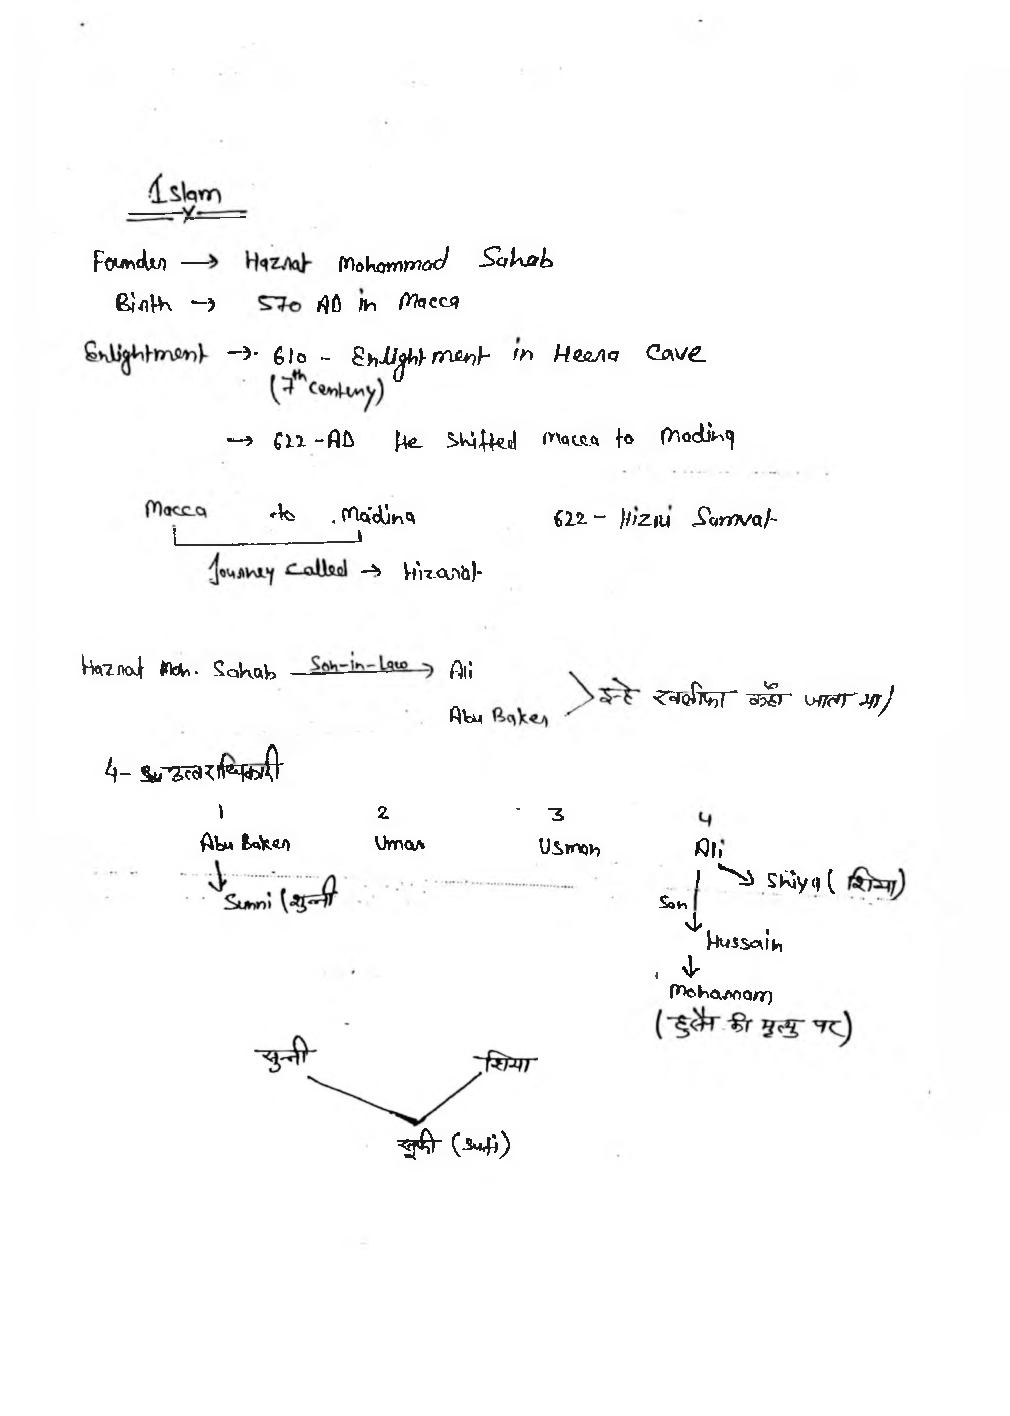 Islam
Founder → Hazrat Mohammad Sahab
Birth → 570 AD in Macca
Enlightment → 610 - Enlightment in Heera Cave
(7th century)
→ 622 - AD He Shifted Macca to Madina
Macca to Madina 622 - Hizri Samvat
Journey Called → Hizarat
Hazrat Moh. Sahab Son-in-Law → Ali
Abu Baker
इन्हे खलीफा कहाँ जाता था।
4- उत्तराधिकारी
1 2 3 4
Abu Baker Umar Usman Ali
→ Shiya (शिया)
Sunni (सुन्नी
Son
Hussain
Moharram
(हुसैन की मृत्यु पर)
सुन्नी शिया
सूफी (Sufi)